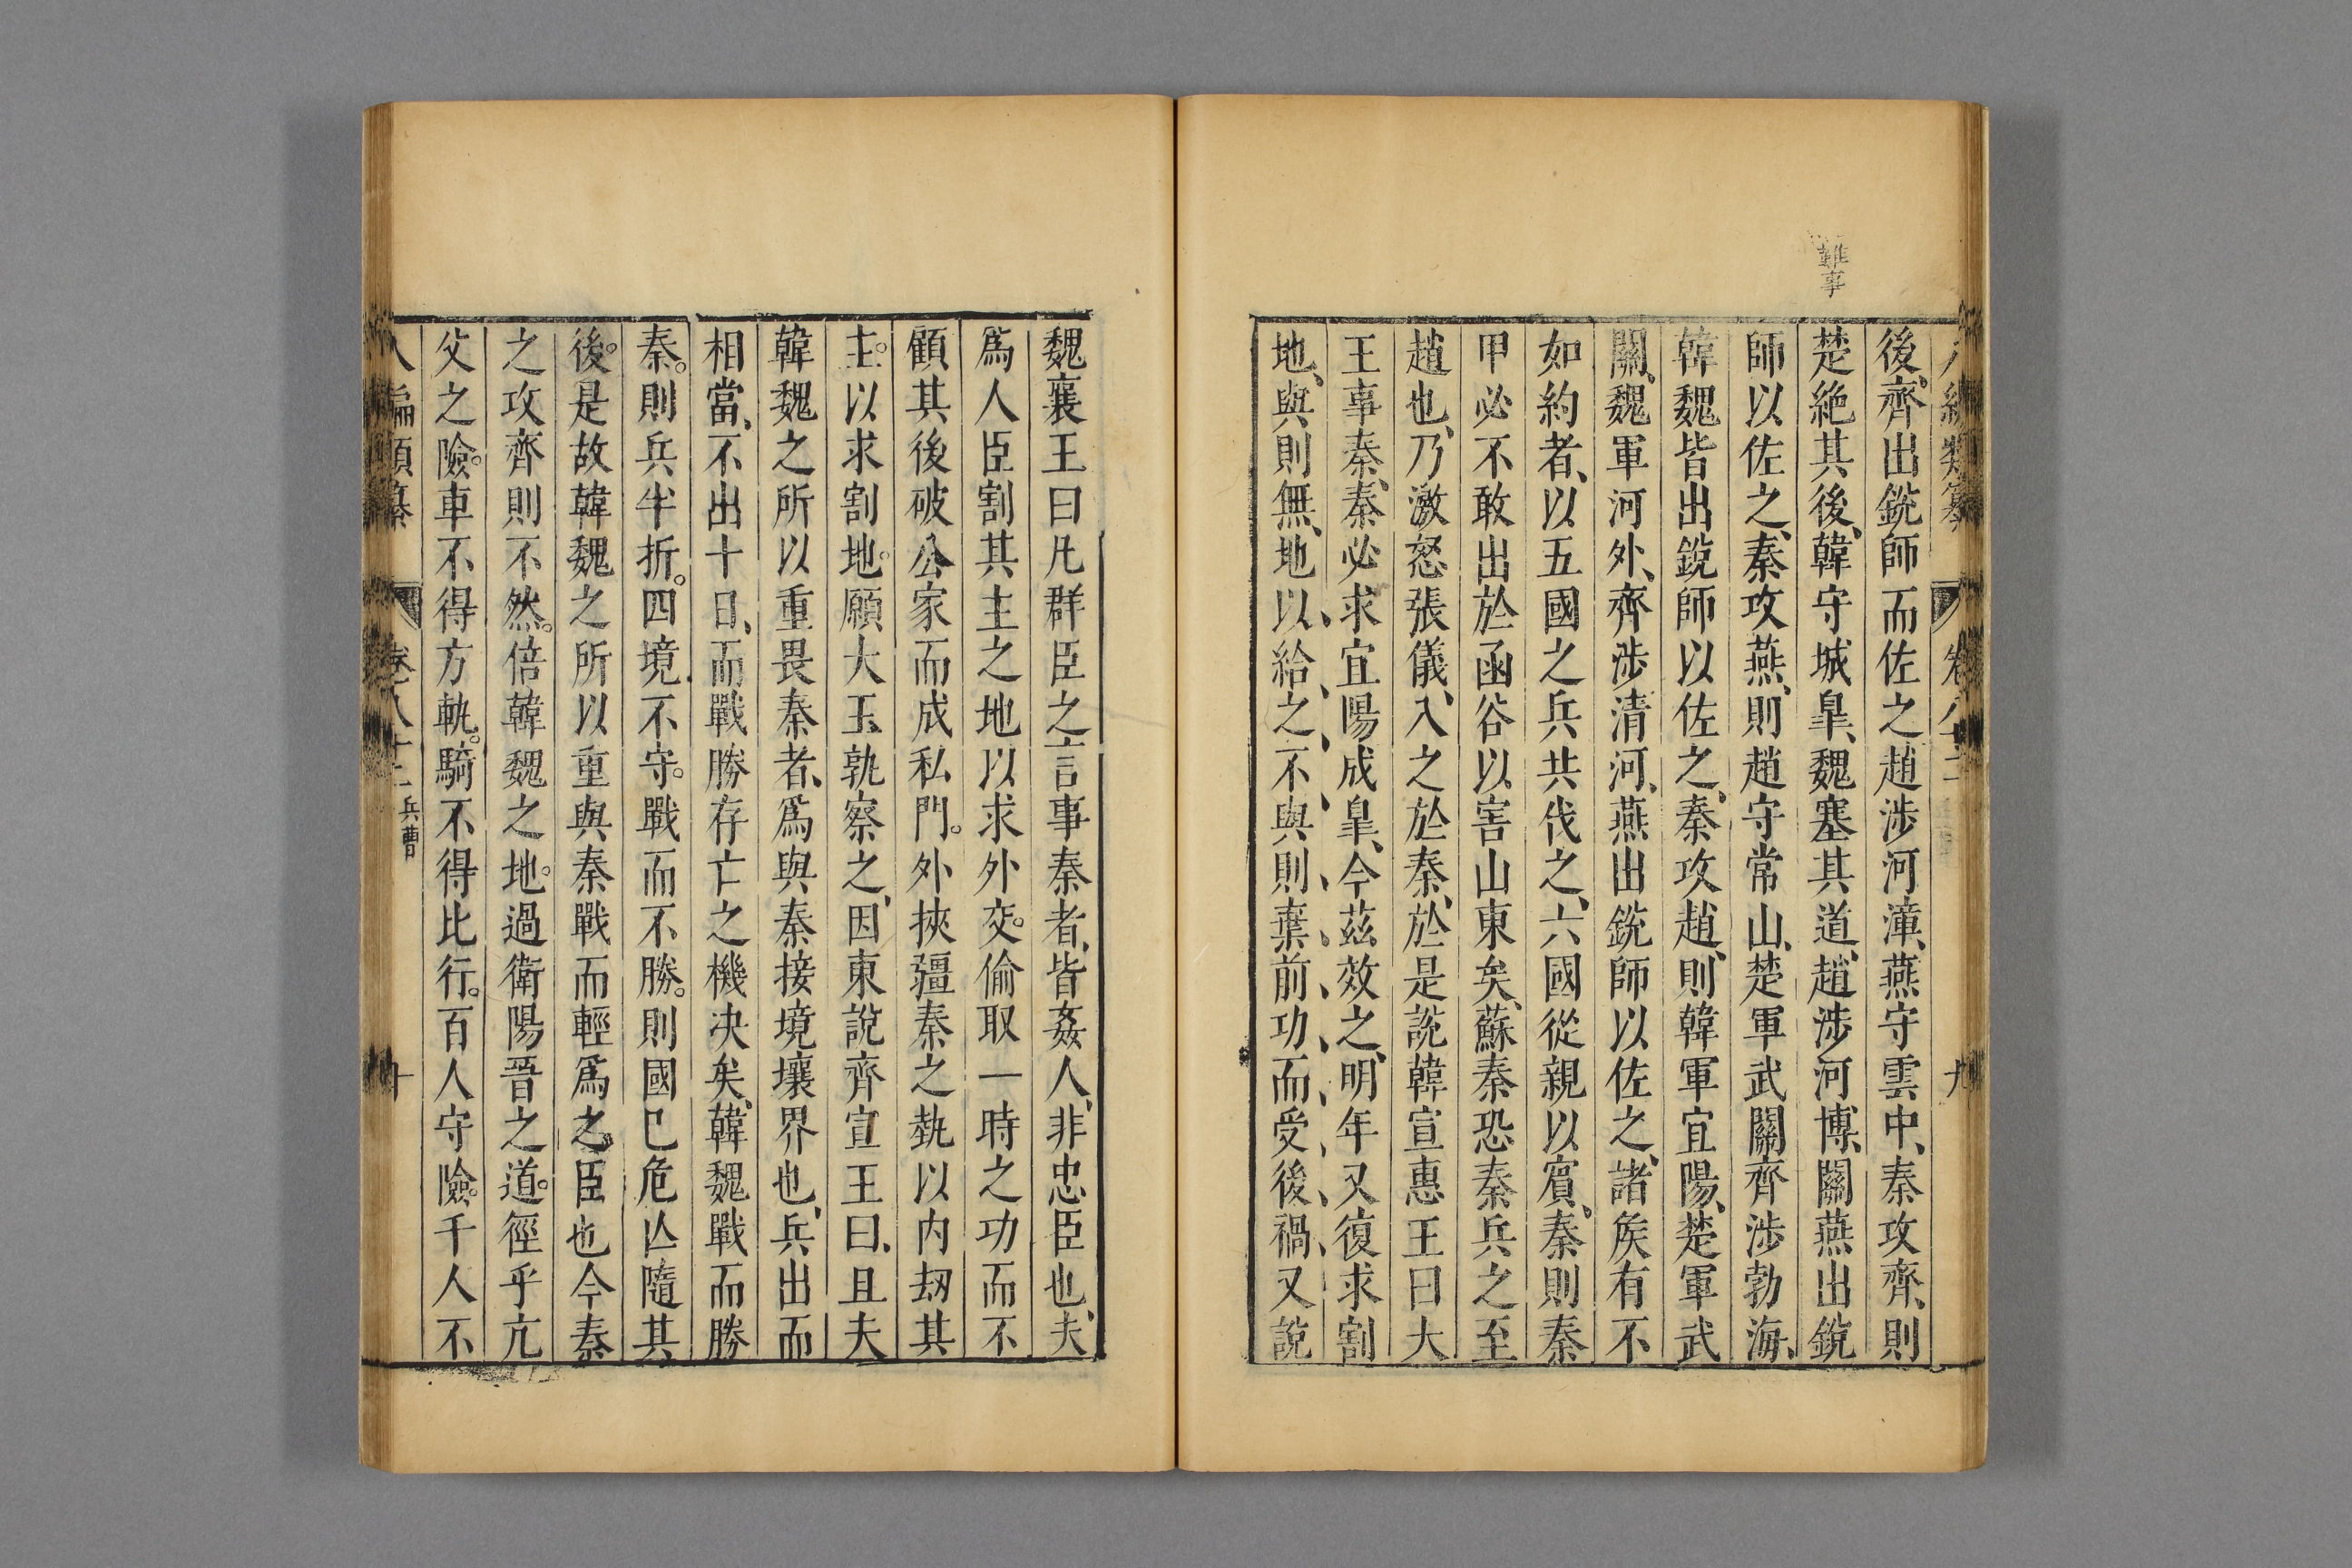 難事
後、齊出銳師而佐之趙涉河漳、燕守雲中、秦攻齊、則
楚絶其後、韓守城皐、魏塞其道、趙涉河博、關燕出銳
師以佐之、秦攻燕、則趙守常山、楚軍武關齊涉勃海、
韓魏皆出銳師以佐之、秦攻趙、則韓軍宜陽、楚軍武
關、魏軍河外、齊涉清河、燕出銳師以佐之、諸矦有不
如約者、以五國之兵共伐之、六國從親以賓、秦則秦
甲必不敢出於函谷以害山東矣、蘇秦恐秦兵之至
趙也、乃激怒張儀、入之於秦、於是說韓宣惠王曰大
王事秦、秦必求宜陽成皐、今茲效之、明年又復求割
地、與則無、地以給之、不與則棄前功、而受後禍、又說
魏襄王曰凡群臣之言事秦者、皆姦人、非忠臣也、夫
爲人臣割其主之地以求外交。偷取一時之功而不
顧其後破公家而成私門。外挾彊秦之埶以内刼其
主。以求割地。願大王孰察之、因東說齊宣王曰、且夫
韓魏之所以重畏秦者、爲與秦接境壤界也、兵出而
相當、不出十日、而戰勝存亡之機决矣、韓魏戰而勝
秦。則兵半折。四境不守。戰而不勝。則國已危亾隨其
後。是故韓魏之所以重與秦戰而輕爲之臣也今秦
之攻齊則不然。倍韓魏之地。過衛陽晋之道。徑乎亢
父之險。車不得方軌。騎不得比行。百人守險。千人不
八編類纂 卷八十二 兵曹 十